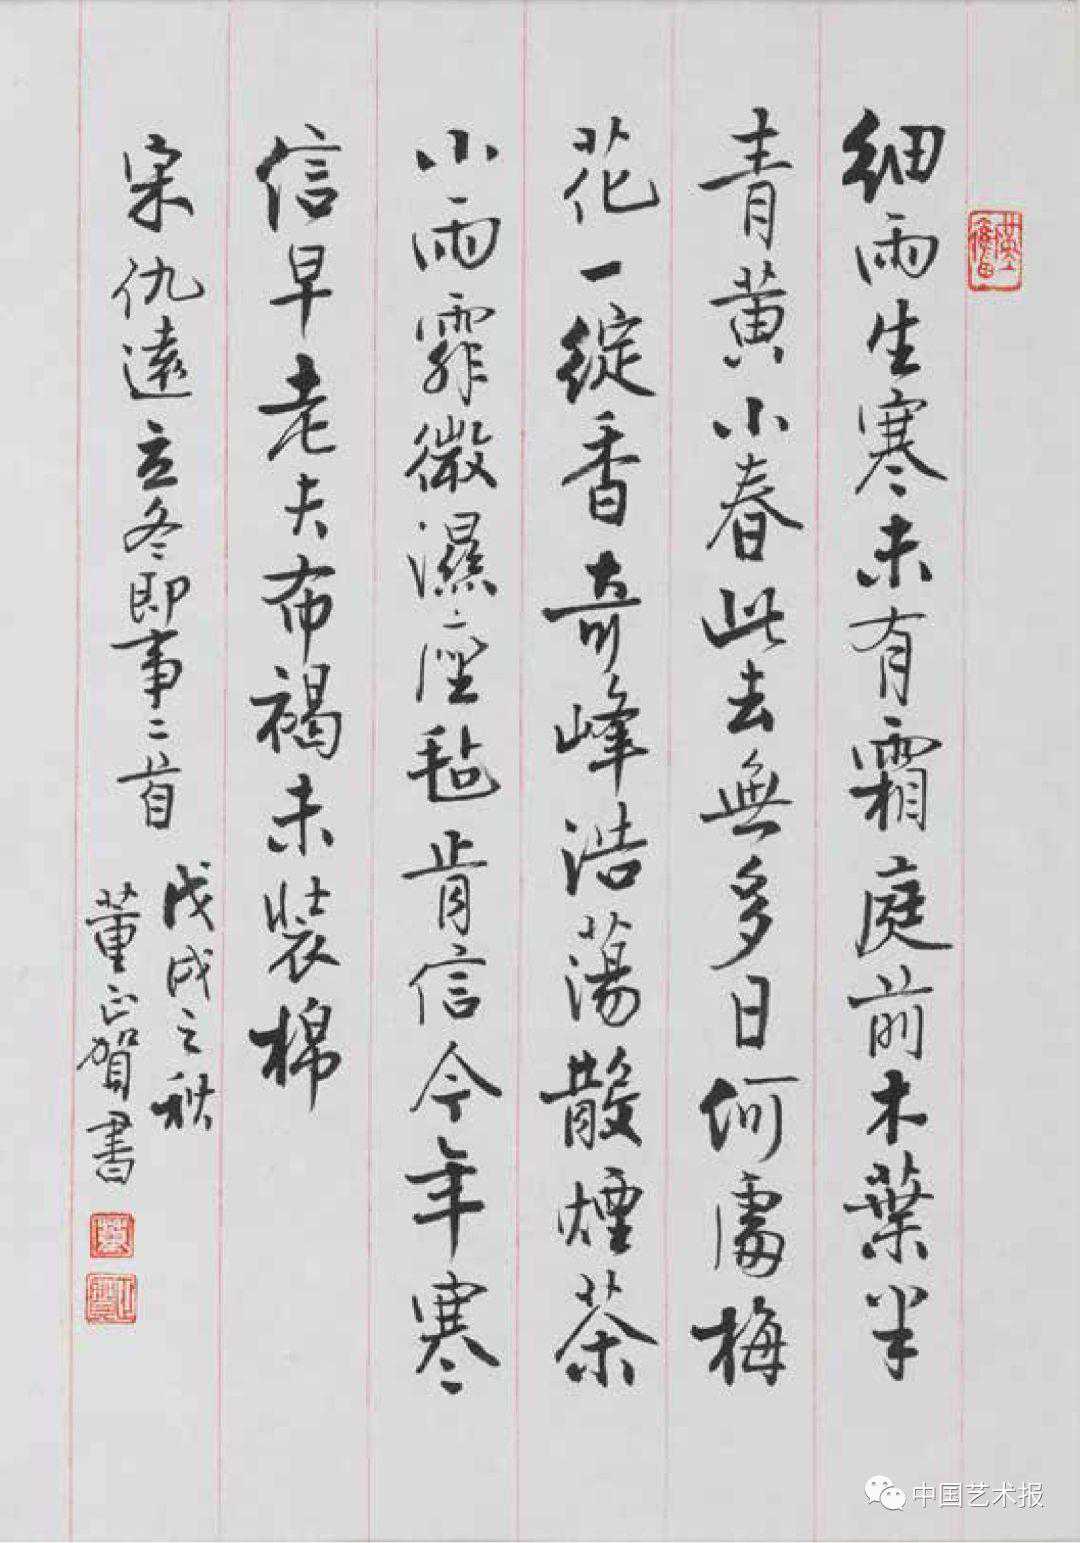 细雨生寒未有霜庭前木葉半
青黄小春此去無多日何處梅
花一綻香奇峰浩蕩散煙茶
小雨霏微濕座毡肯信今年寒
信早老夫布褐未裝棉
宋仇遠立冬即事二首
戊戌之秋
董正賀書
董
正賀
中国艺术报